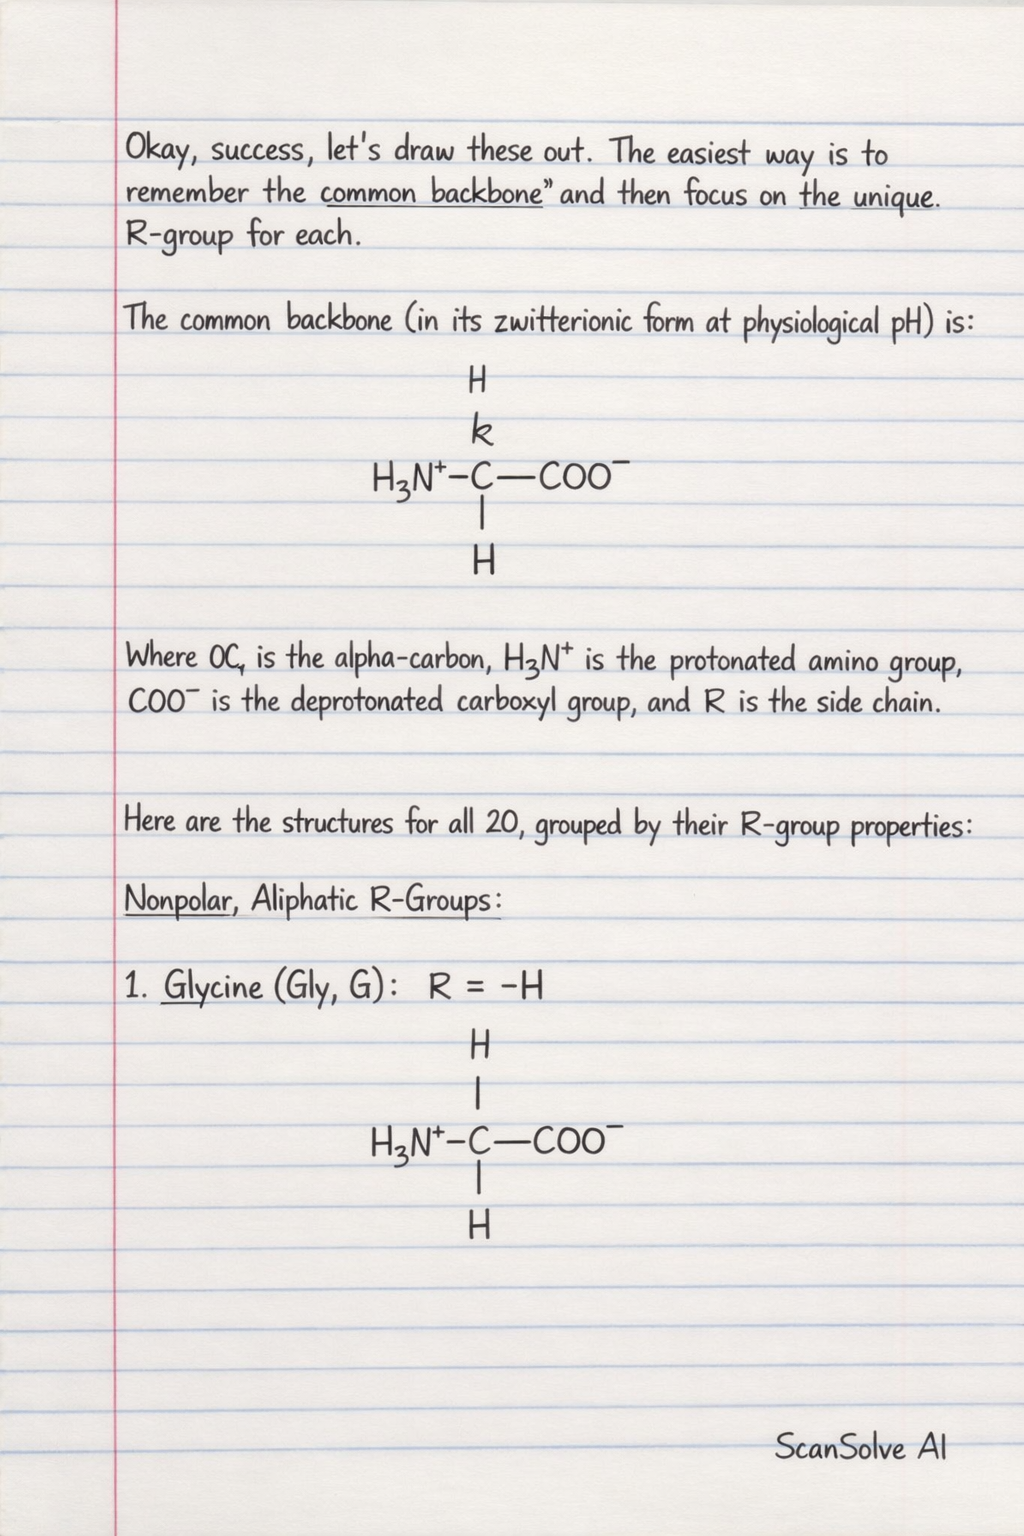 Okay, success, let's draw these out. The easiest way is to
remember the common backbone" and then focus on the unique.
R-group for each.
The common backbone (in its zwitterionic form at physiological pH) is:
H
k
H₃N⁺–C—COO⁻
|
H
Where OC, is the alpha-carbon, H₃N⁺ is the protonated amino group,
COO⁻ is the deprotonated carboxyl group, and R is the side chain.
Here are the structures for all 20, grouped by their R-group properties:
Nonpolar, Aliphatic R-Groups:
1. Glycine (Gly, G): R = -H
H
|
H₃N⁺–C—COO⁻
|
H
ScanSolve AI